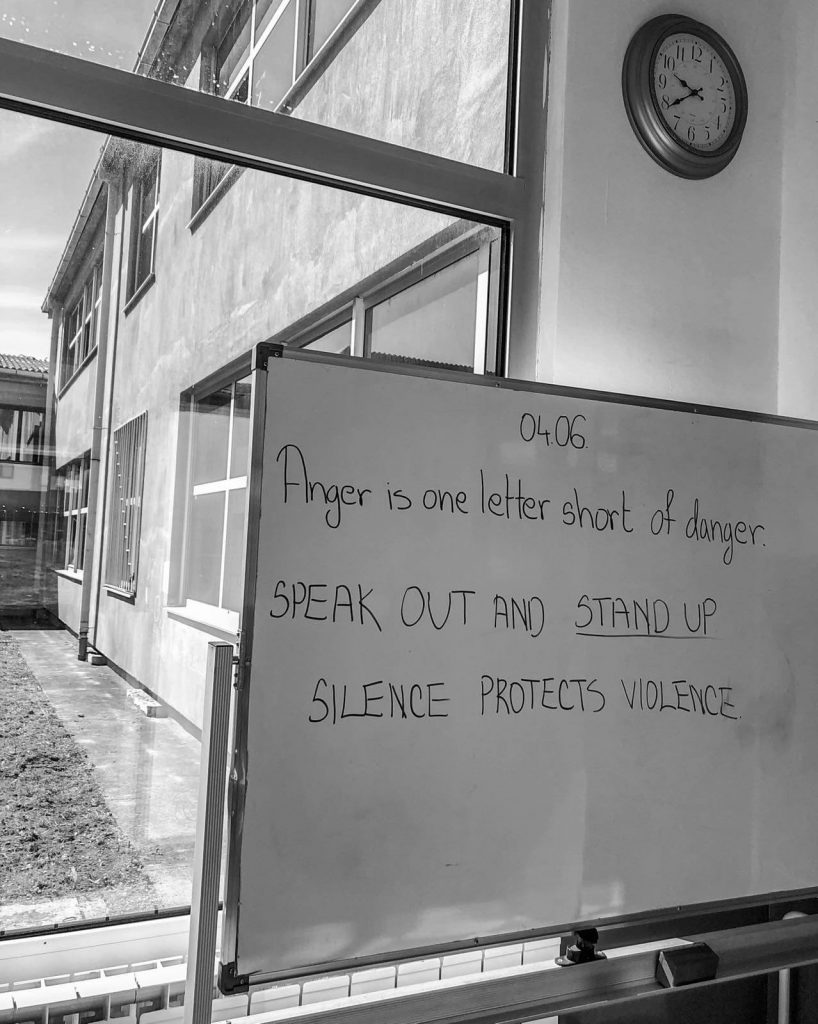 12
11
10
8
7
6
5
4
04.06.
Anger is one letter short of danger.
SPEAK OUT AND STAND UP
SILENCE PROTECTS VIOLENCE.